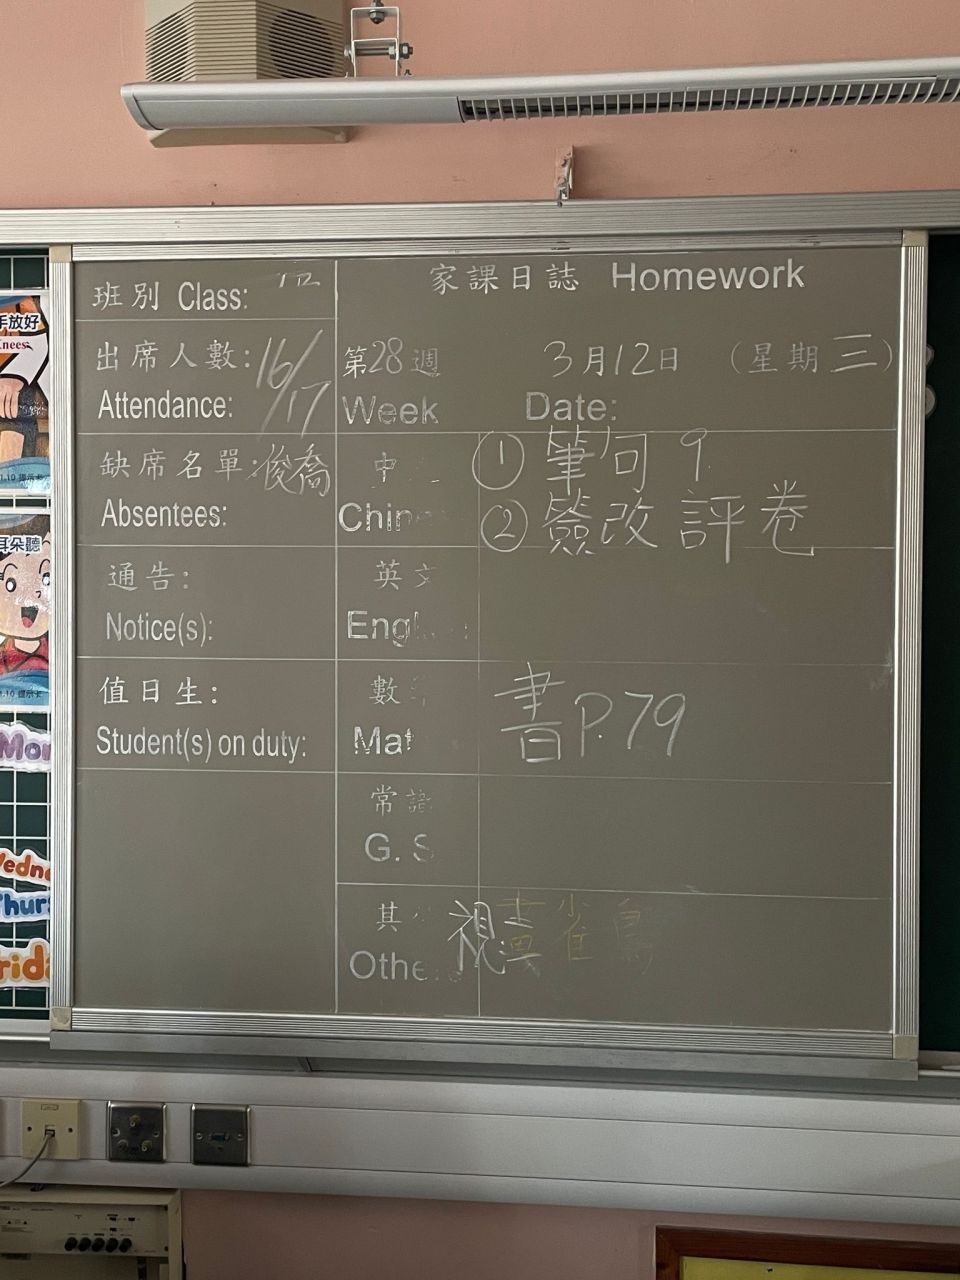 家課日誌 Homework
班別 Class:
出席人數: 16/17
Attendance:
第28週
Week
3月12日 (星期三)
Date:
缺席名單: 俊喬
Absentees:
中
Chin
① 筆句 9
② 簽改評卷
通告:
Notice(s):
英文
Eng
值日生:
Student(s) on duty:
數
Mat
書P.79
常識
G. S
其
Othe
視
雀鳥
手放好
nees
耳朵聽
1.10 提示卡
1.10 提示卡
Mon
Wedn
Thurs
rida